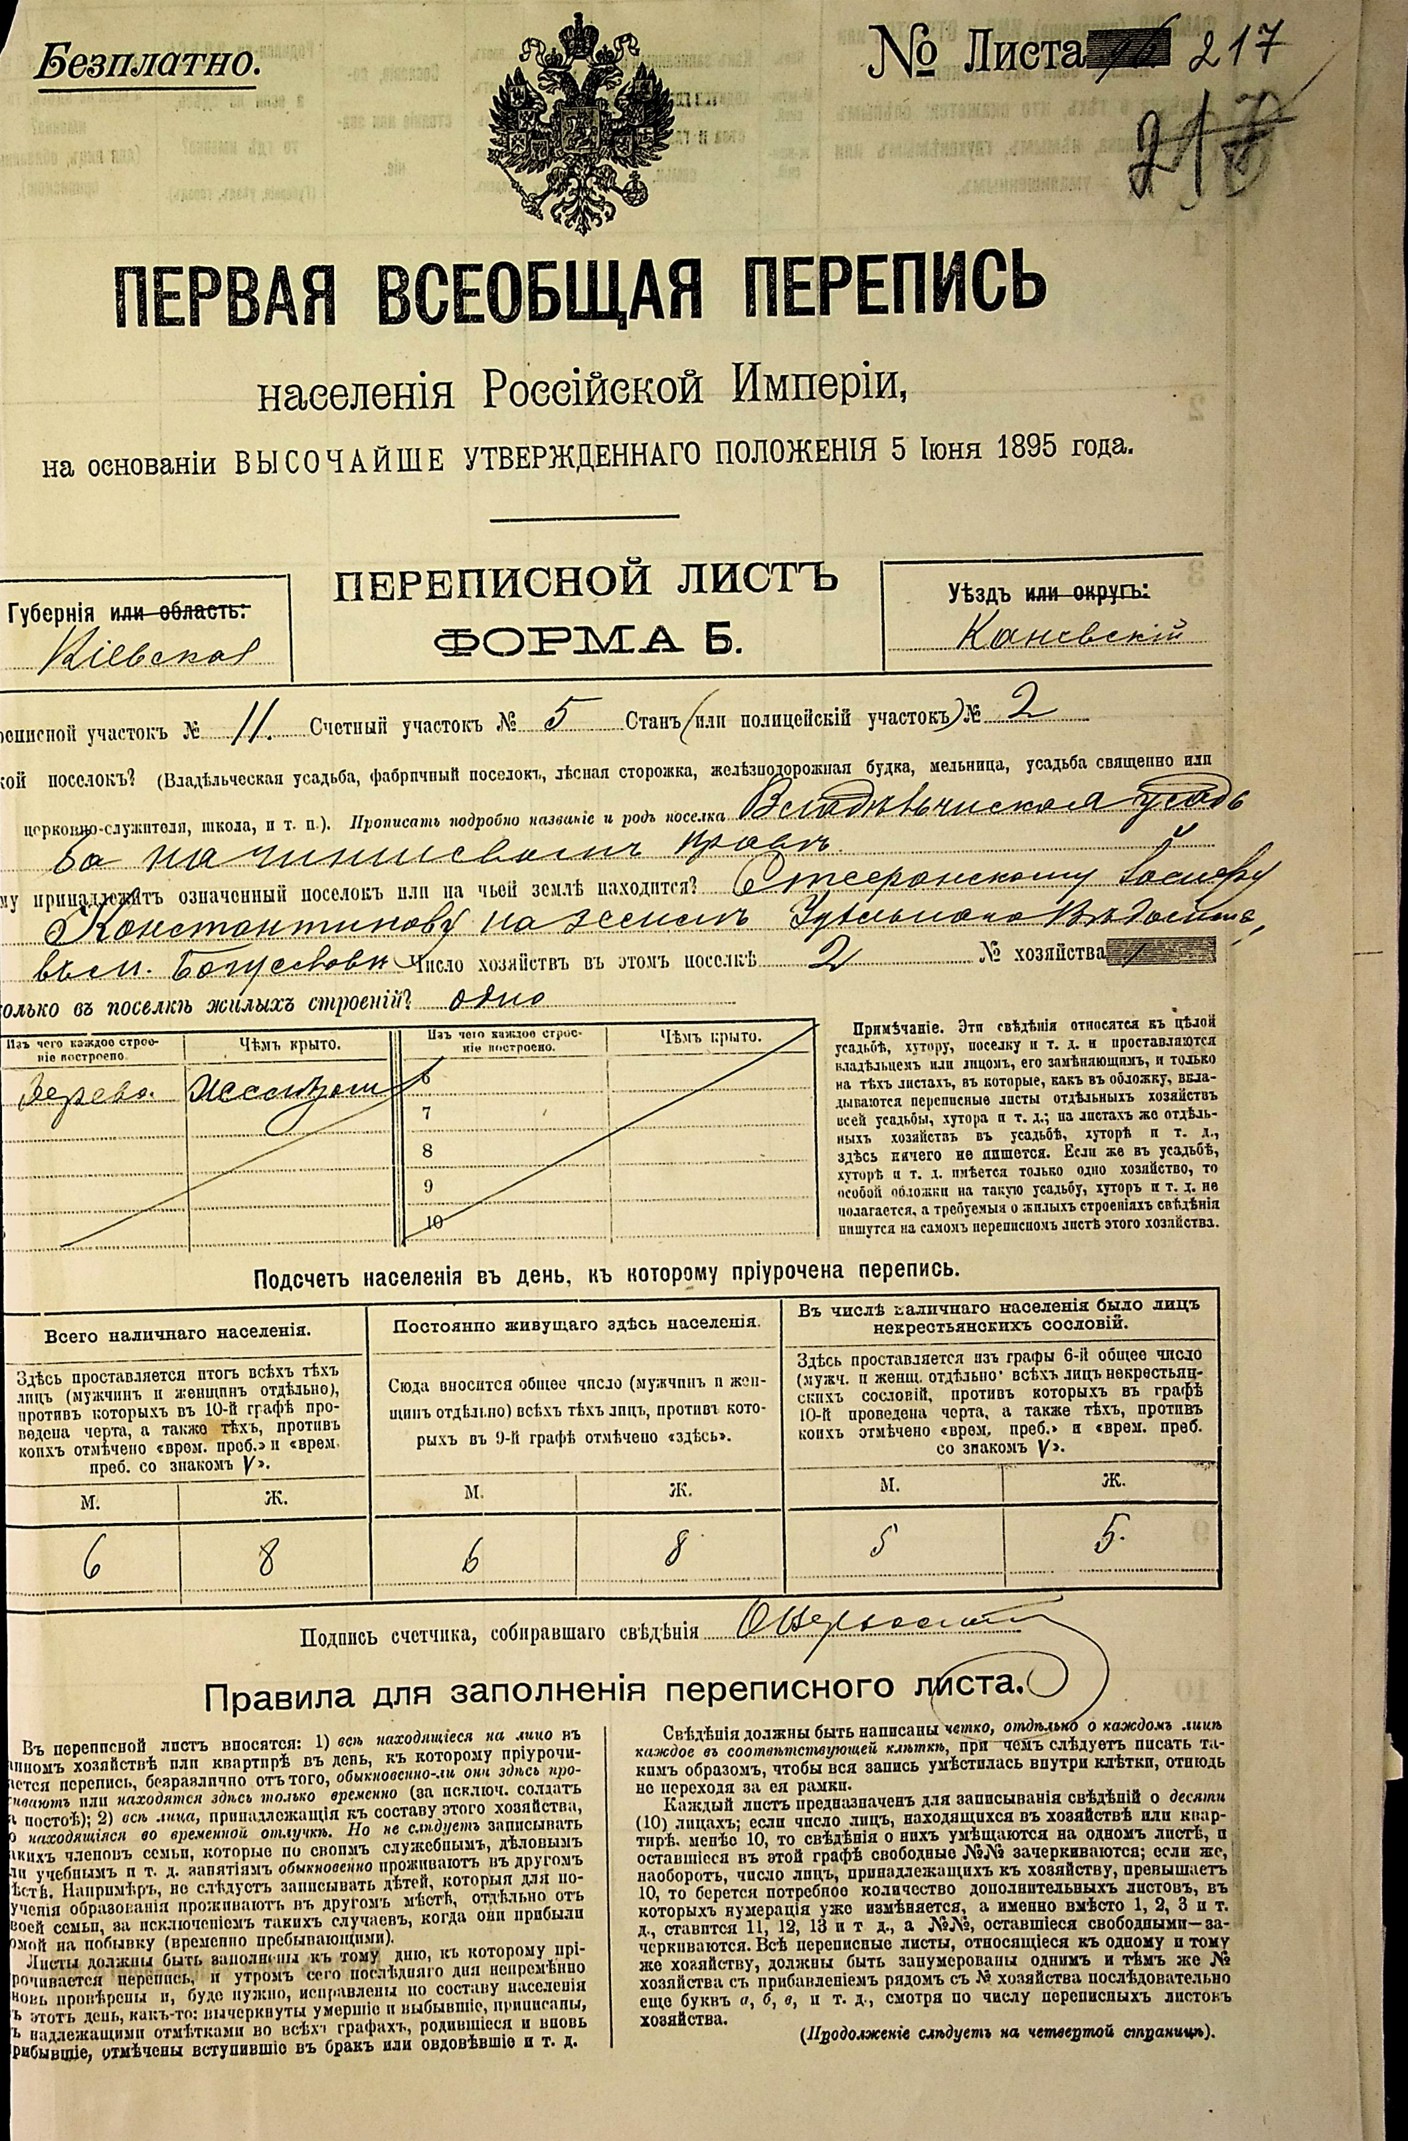 Безплатно.
№ Листа 217
217
ПЕРВАЯ ВСЕОБЩАЯ ПЕРЕПИСЬ
населенія Россійской Имперіи,
на основаніи ВЫСОЧАЙШЕ УТВЕРЖДЕННАГО ПОЛОЖЕНІЯ 5 Іюня 1895 года.
ПЕРЕПИСНОЙ ЛИСТЪ
ФОРМА Б.
Губернія или область:
Кіевская
Уѣздъ или округъ:
Каневскій
реписной участокъ № 11. Счетный участокъ № 5 Станъ (или полицейскій участокъ) № 2
кой поселокъ? (Владѣльческая усадьба, фабричный поселокъ, лѣсная сторожка, желѣзнодорожная будка, мельница, усадьба священно или
церковно-служителя, школа, и т. п.). Прописать подробно названіе и родъ поселка Владѣльческая усадь
ба на чиншевомъ правѣ
му принадлежитъ означенный поселокъ или на чьей землѣ находится?
Константинову на землѣ Удѣльнаго Вѣдомства,
въ м. Богуславѣ Число хозяйствъ въ этомъ поселкѣ 2 № хозяйства 1
олько въ поселкѣ жилыхъ строеній? одно
Изъ чего каждое строеніе построено.
Чѣмъ крыто.
Изъ чего каждое строеніе построено.
Чѣмъ крыто.
Дерево. Желѣзом 6
7
8
9
10
Примѣчаніе. Эти свѣдѣнія относятся къ цѣлой
усадьбѣ, хутору, поселку и т. д. и проставляются
владѣльцемъ или лицомъ, его замѣняющимъ, и только
на тѣхъ листахъ, въ которые, какъ въ обложку, вкла-
дываются переписные листы отдѣльныхъ хозяйствъ
всей усадьбы, хутора и т. д.; на листахъ же отдѣль-
ныхъ хозяйствъ въ усадьбѣ, хуторѣ и т. д.,
здѣсь ничего не пишется. Если же въ усадьбѣ,
хуторѣ и т. д. имѣется только одно хозяйство, то
особой обложки на такую усадьбу, хуторъ и т. д. не
полагается, а требуемыя о жилыхъ строеніяхъ свѣдѣнія
пишутся на самомъ переписномъ листѣ этого хозяйства.
Подсчетъ населенія въ день, къ которому пріурочена перепись.
Всего наличнаго населенія.
Здѣсь проставляется итогъ всѣхъ тѣхъ
лицъ (мужчинъ и женщинъ отдѣльно),
противъ которыхъ въ 10-й графѣ про-
ведена черта, а также тѣхъ, противъ
коихъ отмѣчено «врем. преб.» и «врем.
преб. со знакомъ V».
М. Ж.
6 8
Постоянно живущаго здѣсь населенія.
Сюда вносится общее число (мужчинъ и жен-
щинъ отдѣльно) всѣхъ тѣхъ лицъ, противъ кото-
рыхъ въ 9-й графѣ отмѣчено «здѣсь».
М. Ж.
6 8
Въ числѣ наличнаго населенія было лицъ
некрестьянскихъ сословій.
Здѣсь проставляется изъ графы 6-й общее число
(мужч. и женщ. отдѣльно) всѣхъ лицъ некрестьян-
скихъ сословій, противъ которыхъ въ графѣ
10-й проведена черта, а также тѣхъ, противъ
коихъ отмѣчено «врем. преб.» и «врем. преб.
со знакомъ V».
М. Ж.
5 5.
Подпись счетчика, собиравшаго свѣдѣнія
Правила для заполненія переписного листа.
Въ переписной листъ вносятся: 1) всѣ находящіеся на лицо въ
нномъ хозяйствѣ или квартирѣ въ день, къ которому пріурочи-
ается перепись, безразлично отъ того, обыкновенно-ли они здѣсь про-
ивають или находятся здѣсь только временно (за исключ. солдатъ
а постоѣ); 2) всѣ лица, принадлежащія къ составу этого хозяйства,
о находящіяся во временной отлучкѣ. Но не слѣдуетъ записывать
акихъ членовъ семьи, которые по своимъ служебнымъ, дѣловымъ
ли учебнымъ и т. д. занятіямъ обыкновенно проживаютъ въ другомъ
ѣстѣ. Напримѣръ, не слѣдустъ записывать дѣтей, которыя для по-
ученія образованія проживаютъ въ другомъ мѣстѣ, отдѣльно отъ
воей семьи, за исключеніемъ такихъ случаевъ, когда они прибыли
омой на побывку (временно пребывающими).
Листы должны быть заполнены къ тому дню, къ которому прі-
рочивается перепись, и утромъ сего послѣдняго дня непремѣнно
новь провѣрены и, буде нужно, исправлены по составу населенія
ъ этотъ день, какъ-то: вычеркнуты умершіе и выбывшіе, приписаны,
ъ надлежащими отмѣтками во всѣхъ графахъ, родившіеся и вновь
рибывшіе, отмѣчены вступившіе въ бракъ или овдовѣвшіе и т. д.
Свѣдѣнія должны быть написаны четко, отдѣльно о каждомъ лицѣ
каждое въ соотвѣтствующей клѣткѣ, при чемъ слѣдуетъ писать та-
кимъ образомъ, чтобы вся запись умѣстилась внутри клѣтки, отнюдь
не переходя за ея рамки.
Каждый листъ предназначенъ для записыванія свѣдѣній о десяти
(10) лицахъ; если число лицъ, находящихся въ хозяйствѣ или квар-
тирѣ, менѣе 10, то свѣдѣнія о нихъ умѣщаются на одномъ листѣ, и
оставшіеся въ этой графѣ свободные №№ зачеркиваются; если же,
наоборотъ, число лицъ, принадлежащихъ къ хозяйству, превышаетъ
10, то берется потребное количество дополнительныхъ листовъ, въ
которыхъ нумерація уже измѣняется, а именно вмѣсто 1, 2, 3 и т.
д., ставится 11, 12, 13 и т д., а №№, оставшіеся свободными—за-
черкиваются. Всѣ переписные листы, относящіеся къ одному и тому
же хозяйству, должны быть занумерованы однимъ и тѣмъ же №
хозяйства съ прибавленіемъ рядомъ съ № хозяйства послѣдовательно
еще буквъ а, б, в, и т. д., смотря по числу переписныхъ листовъ
хозяйства.
(Продолженіе слѣдуетъ на четвертой страницѣ).